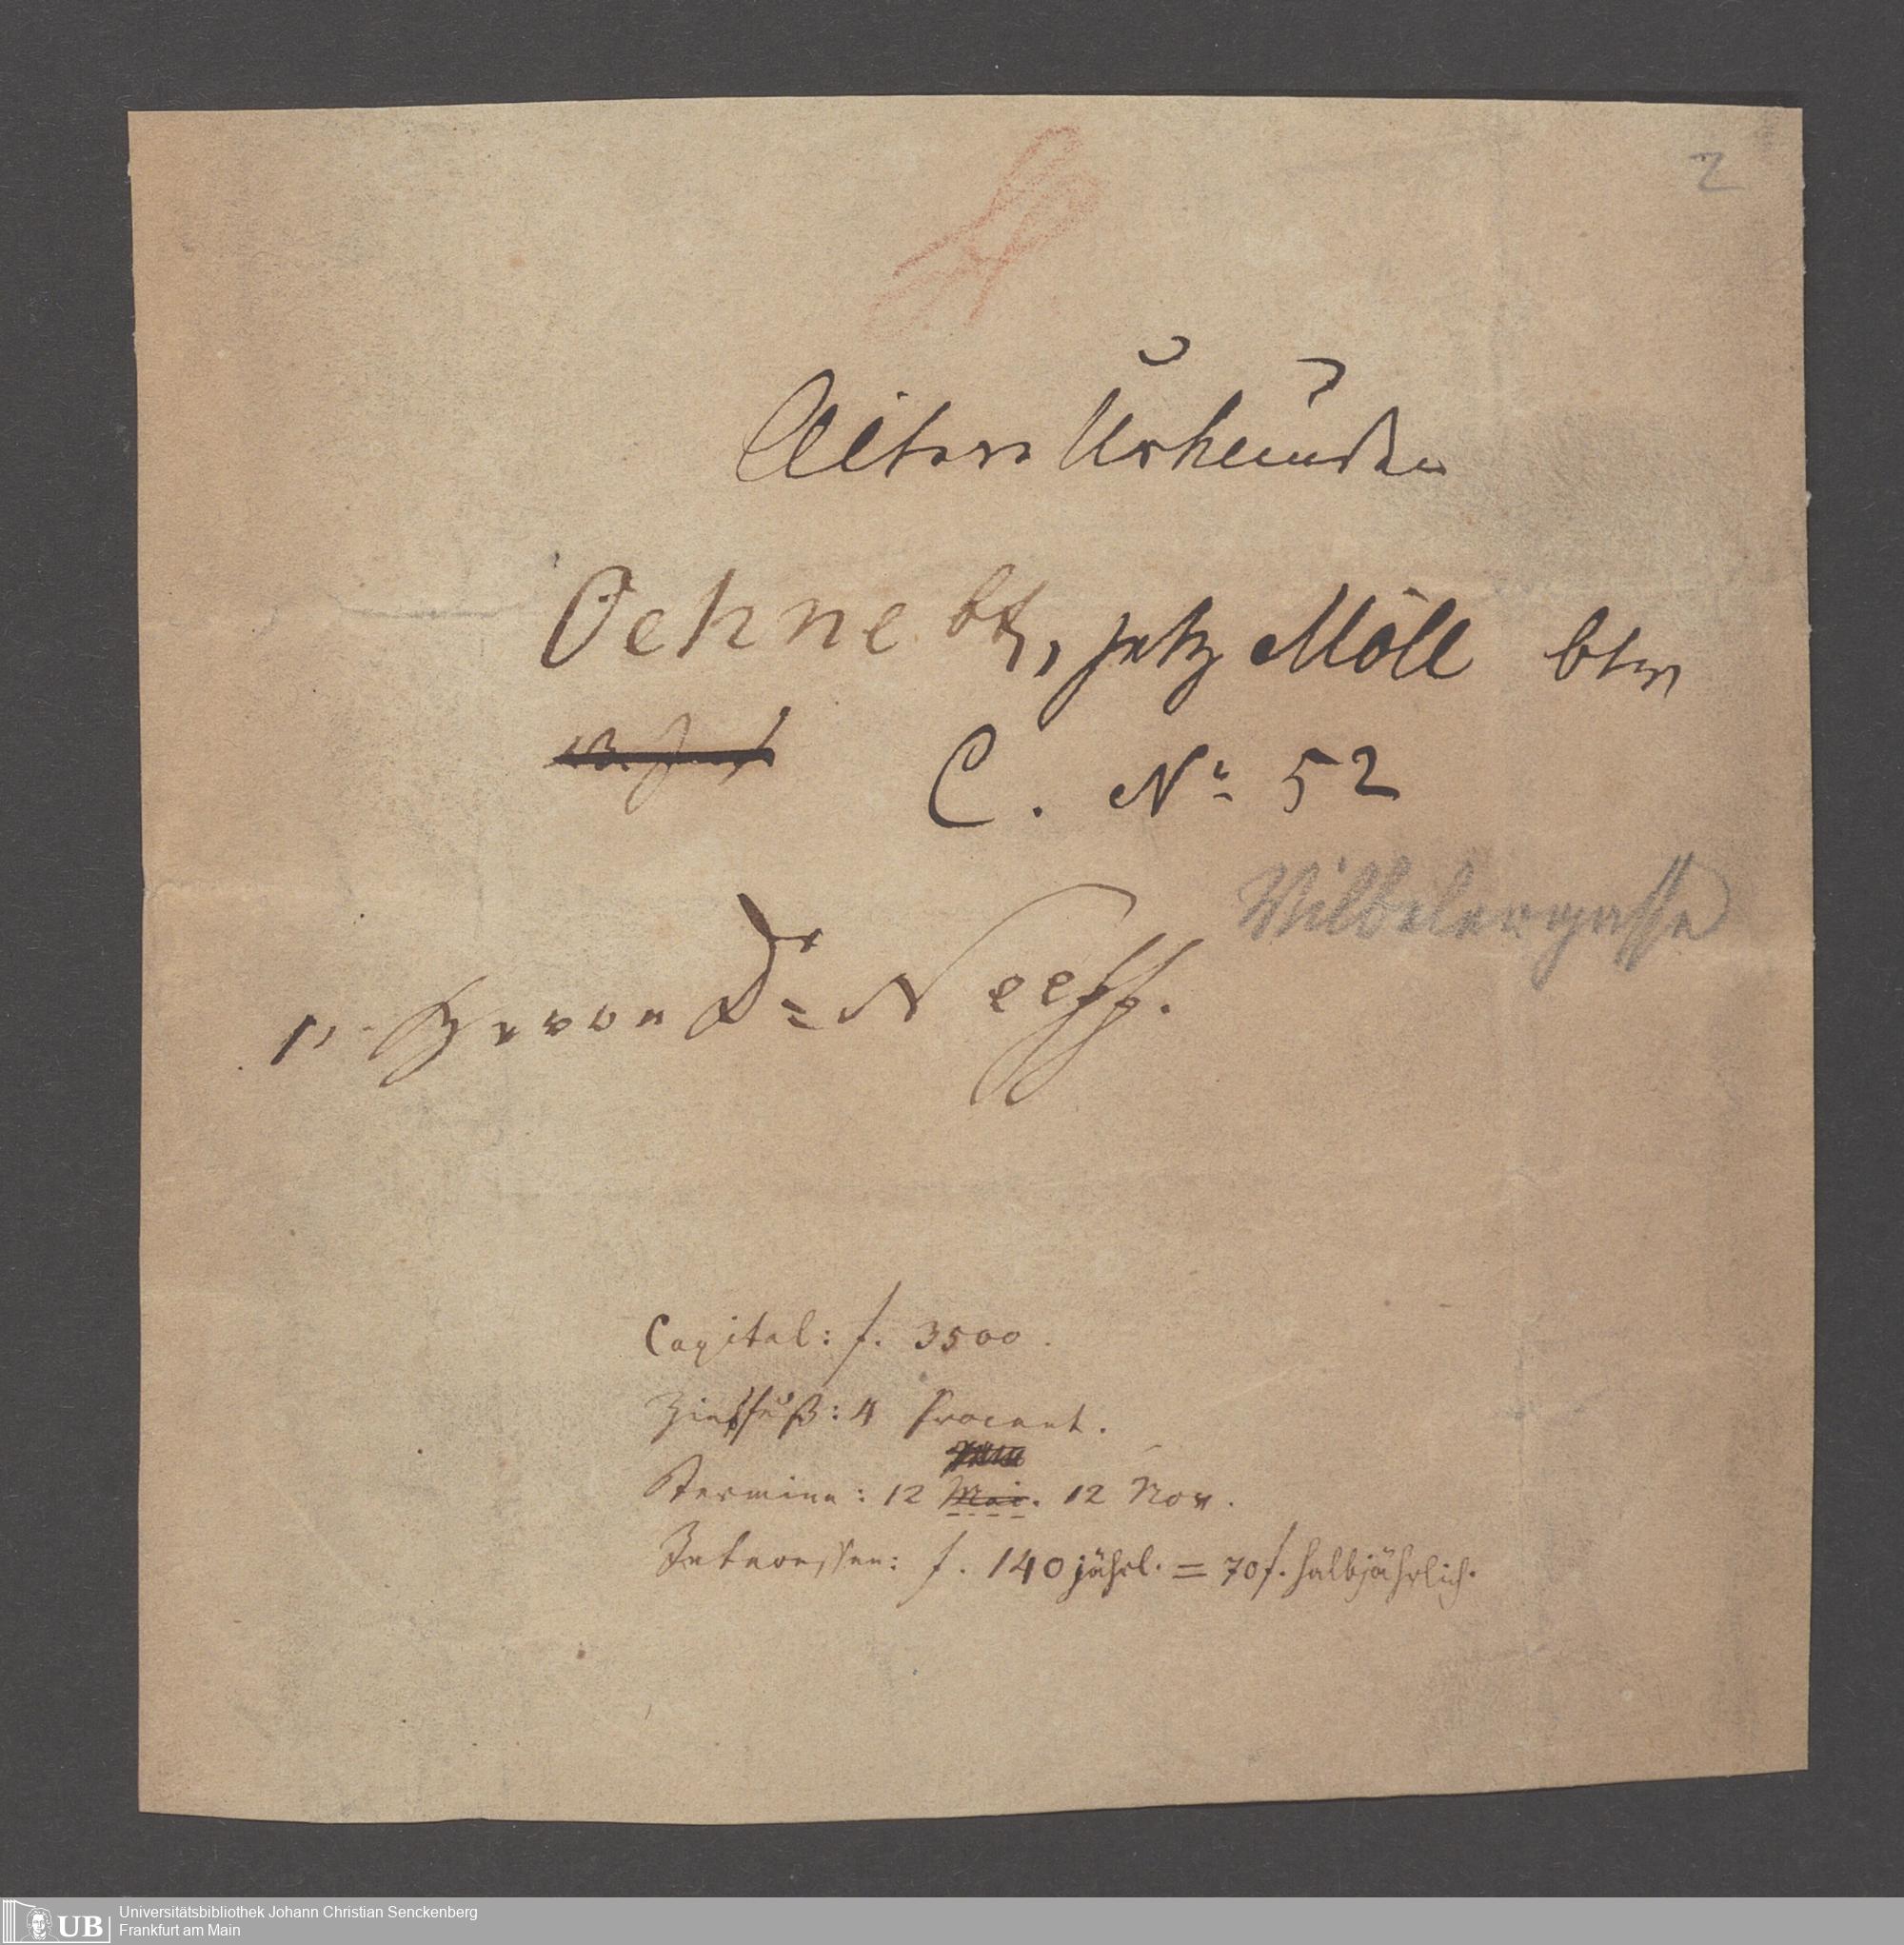 2
Aeltere Urkunden
Oehne btr, jetz Möll btr
C. No 52
Vilbelergasse
Herrn Dr Neeff.
Capital: f. 3500.
Zinsfuß: 4 Procent.
Termine: 12 Mai. 12 Nov.
Interessen: f. 140 jährl. = 70 f. halbjährlich.
UB
Universitätsbibliothek Johann Christian Senckenberg
Frankfurt am Main